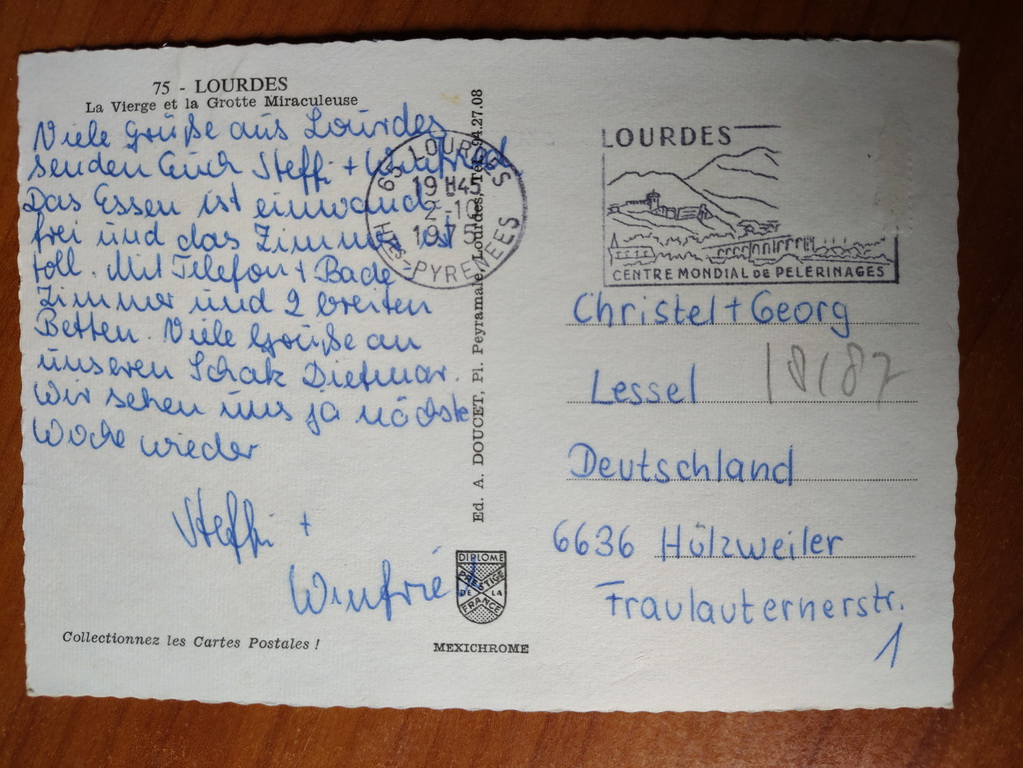 75 - LOURDES
La Vierge et la Grotte Miraculeuse
Viele Grüße aus Lourdes
senden Euch Steffi + Winfried
Das Essen ist einwand
frei und das Zimmer ist
toll. Mit Telefon + Bade
Zimmer und 2 breiten
Betten. Viele Grüße an
unseren Schatz Dietmar.
Wir sehen uns ja nächste
Woche wieder
Steffi +
Winfried
Collectionnez les Cartes Postales !
65 LOURDES
19 H45
2-10
197
HTES-PYRENEES
Ed. A. DOUCET, Pl. Peyramale, Lourdes, Tél. 94.27.08
DIPLOME
PRESTIGE
DE LA
FRANCE
MEXICHROME
LOURDES
CENTRE MONDIAL DE PELERINAGES
Christel + Georg
Lessel
18/87
Deutschland
6636 Hülzweiler
Fraulauternerstr.
1